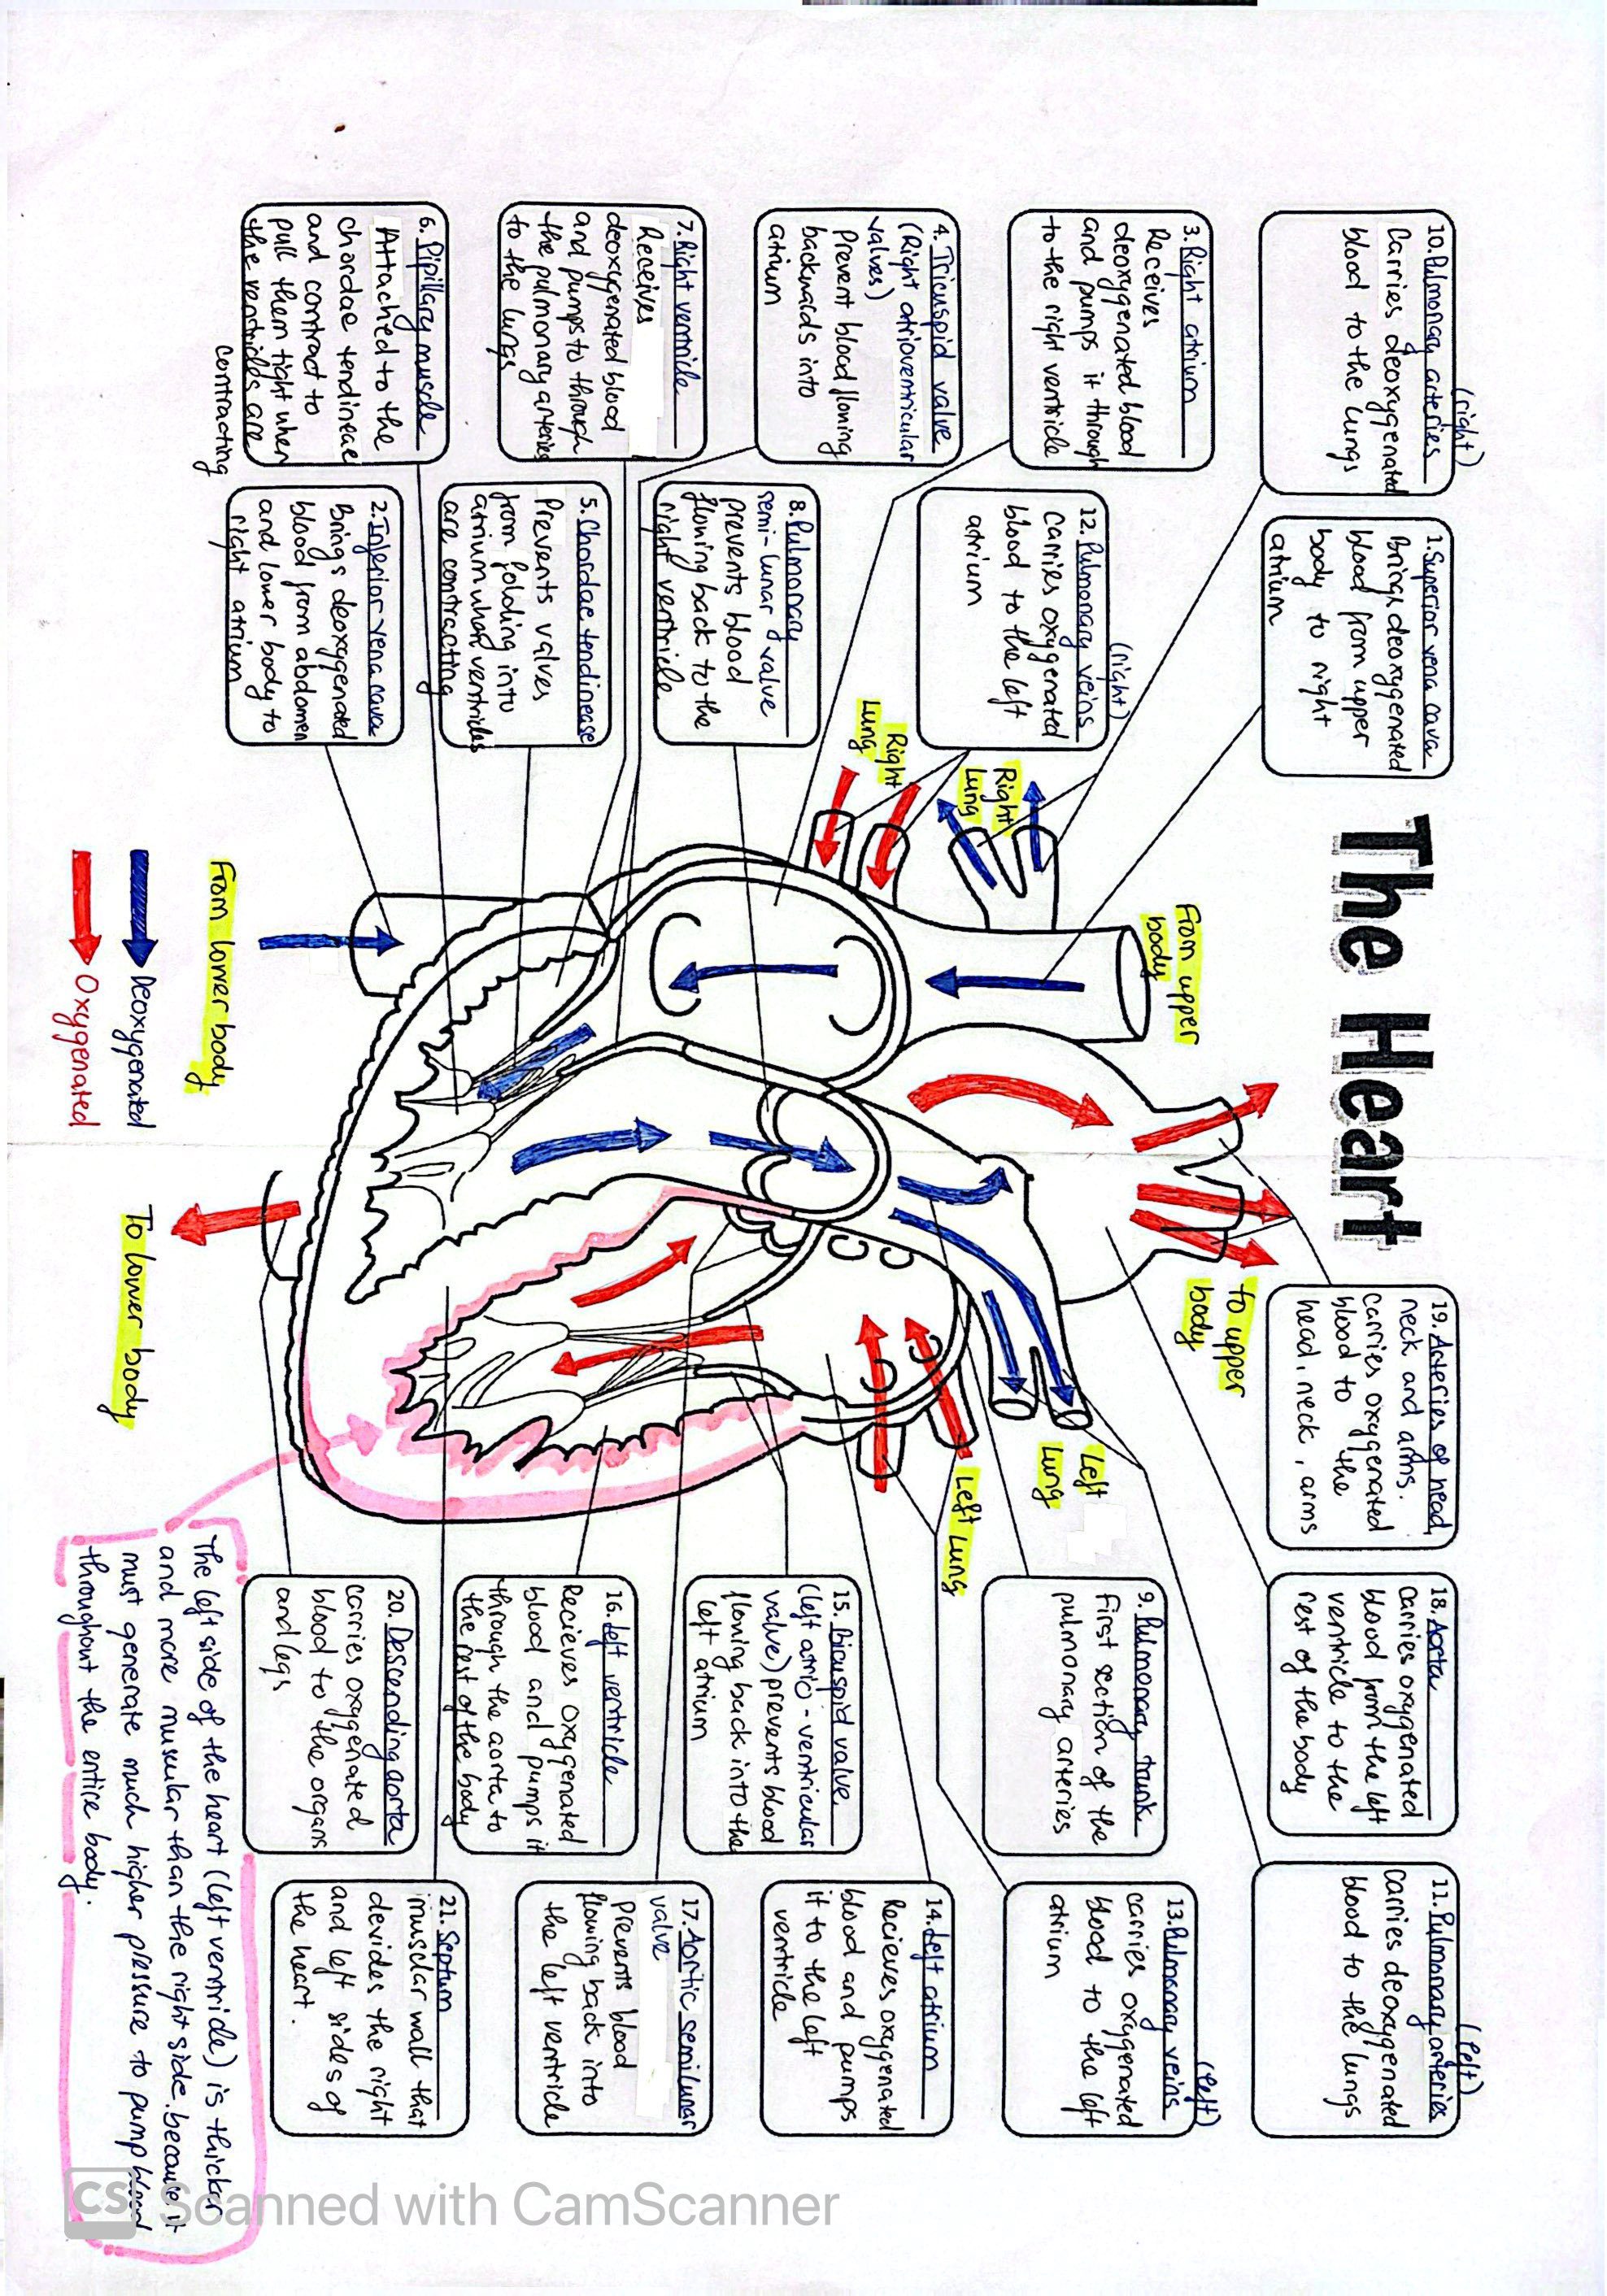 The Heart
10. Pulmonary arteries
(right)
Carries deoxygenated
blood to the lungs
1. Superior vena cava
Brings deoxygenated
blood from upper
body to right
atrium
19. Arteries of head,
neck and arms.
carries oxygenated
blood to the
head, neck, arms
18. Aorta
carries oxygenated
blood from the left
ventricle to the
rest of the body
11. Pulmonary arteries
(left)
carries deoxygenated
blood to the lungs
3. Right atrium
Receives
deoxygenated blood
and pumps it through
to the right ventricle
12. Pulmonary veins
(right)
carries oxygenated
blood to the left
atrium
9. Pulmonary trunk
first section of the
pulmonary arteries
13. Pulmonary veins
(left)
carries oxygenated
blood to the left
atrium
4. Tricuspid valve
(Right atrioventricular
valves)
Prevent blood flowing
backwards into
atrium
8. Pulmonary
semi-lunar valve
prevents blood
flowing back to the
right ventricle
15. bicuspid valve
(left atrio-ventricular
valve) prevents blood
flowing back into the
left atrium
14. Left atrium
Recieves oxygenated
blood and pumps
it to the left
ventricle
7. Right ventricle
Receives
deoxygenated blood
and pumps to through
the pulmonary arteries
to the lungs
5. Chordae tendineae
Prevents valves
from folding into
atrium when ventricles
are contracting
16. left ventricle
Recieves oxygenated
blood and pumps it
through the aorta to
the rest of the body
17. Aortic semilunar
valve
prevents blood
flowing back into
the left ventricle
6. Pipillary muscle
Attached to the
chordae tendineae
and contract to
pull them tight when
the ventricles are
contracting
2. Inferior vena cava
Brings deoxygenated
blood from abdomen
and lower body to
right atrium
20. Descending aorta
carries oxygenated
blood to the organs
and legs
21. Septum
muscular wall that
devides the right
and left sides of
the heart.
From upper
body
To upper
body
Right
Lung
Right
Lung
Left
Lung
Left Lung
From lower body
To lower body
Deoxygenated
Oxygenated
The left side of the heart (left ventricle) is thicker
and more muscular than the right side because it
must generate much higher pressure to pump blood
throughout the entire body.
CS Scanned with CamScanner